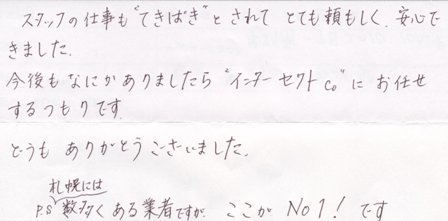 スタッフの仕事も"てきぱき"とされて とても頼もしく、安心で
きました。
今後もなにかありましたら "インターセクトCo"に お任せ
するつもりです。
どうも ありがとうございました。
札幌には
P.S 数多く ある業者ですが、ここが No1! です